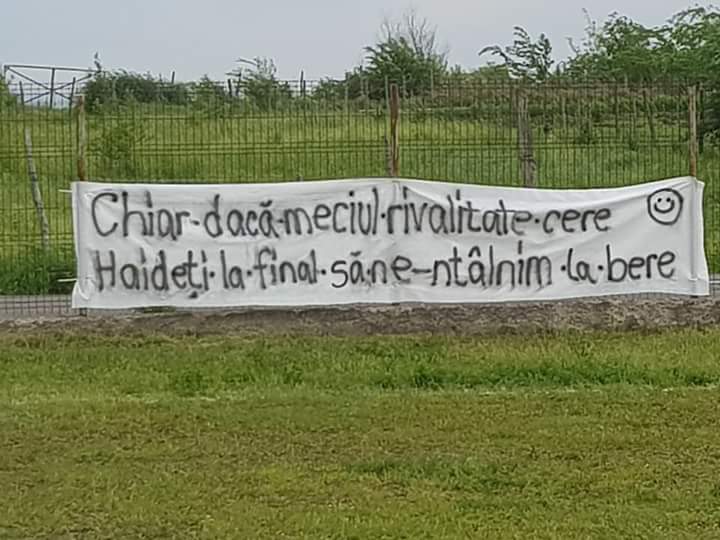 Chiar·dacă·meciul·rivalitate·cere
Haideți·la·final·să·ne-ntâlnim·la·bere